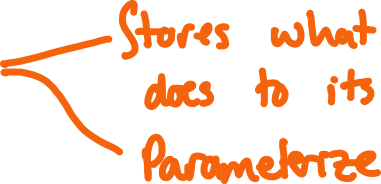 Stores what
does to its
Parameterize